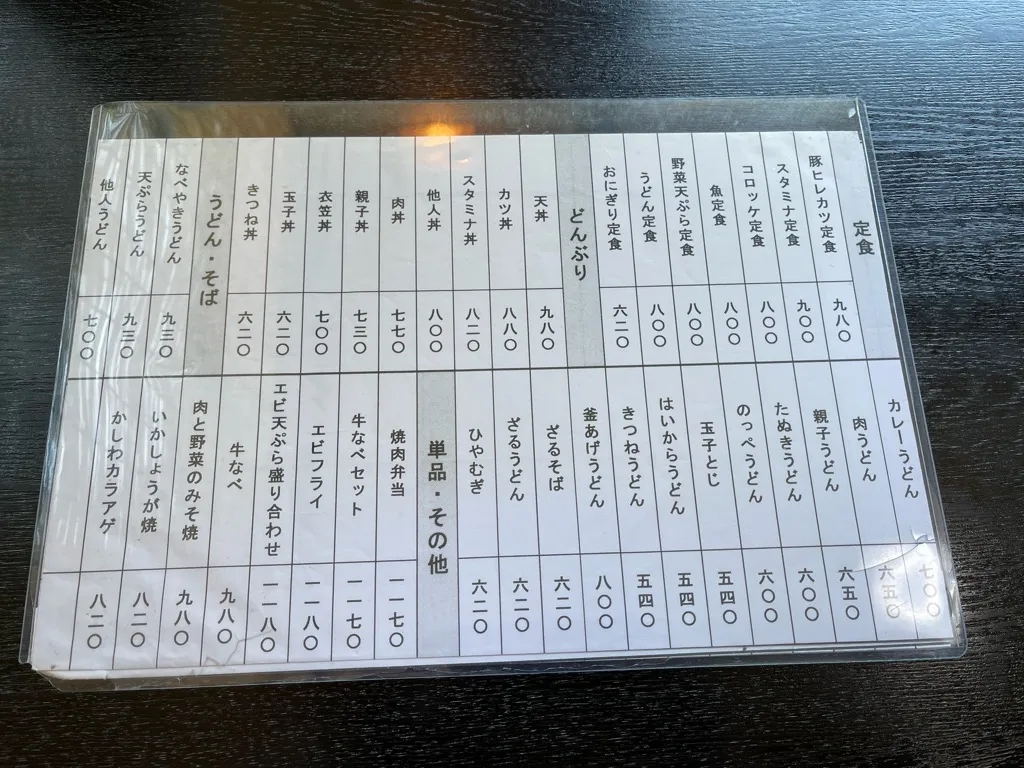 定食
豚ヒレカツ定食 九八〇
スタミナ定食 九〇〇
コロッケ定食 八〇〇
魚定食 八〇〇
野菜天ぷら定食 八〇〇
うどん定食 八〇〇
おにぎり定食 六二〇
どんぶり
天丼 九八〇
カツ丼 八八〇
スタミナ丼 八二〇
他人丼 八〇〇
肉丼 七七〇
親子丼 七三〇
衣笠丼 七〇〇
玉子丼 六二〇
きつね丼 六二〇
うどん・そば
なべやきうどん 九三〇
天ぷらうどん 九三〇
他人うどん 七〇〇
カレーうどん 七〇〇
肉うどん 六五〇
親子うどん 六五〇
たぬきうどん 六〇〇
のっぺうどん 六〇〇
玉子とじ 五四〇
はいからうどん 五四〇
きつねうどん 五四〇
釜あげうどん 八〇〇
ざるそば 六二〇
ざるうどん 六二〇
ひやむぎ 六二〇
単品・その他
焼肉弁当 一一七〇
牛なべセット 一一七〇
エビフライ 一一八〇
エビ天ぷら盛り合わせ 一一八〇
牛なべ 九八〇
肉と野菜のみそ焼 九八〇
いかしょうが焼 八二〇
かしわカラアゲ 八二〇